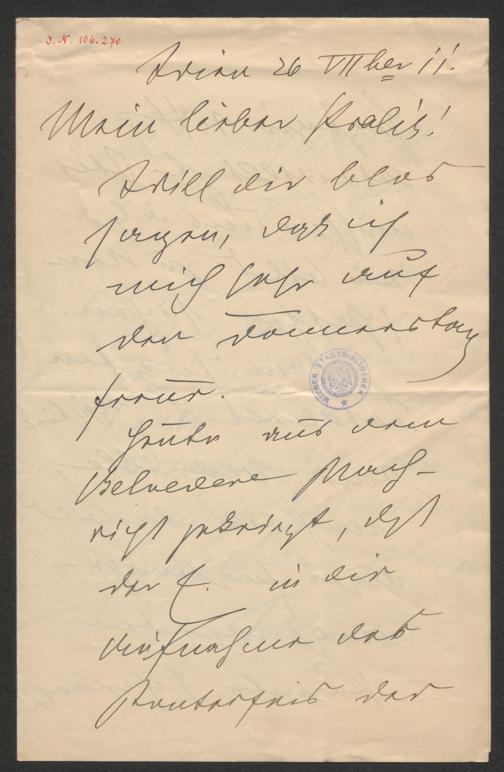 J.N. 106.270
Wien 26 VIIber 11.
Mein lieber Kralik!
Will dir blos
sagen, daß ich
mich sehr auf
den Donnerstag
freue.
WIENER STADTBIBLIOTHEK
Heute aus dem
Belvedere Nach-
richt gekriegt, daß
der E. in die
Aufnahme des
Konterfeis der